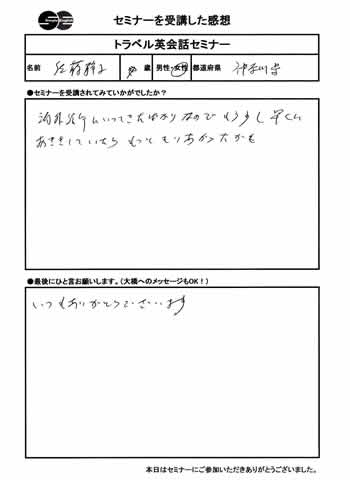 セミナーを受講した感想
トラベル英会話セミナー
名前 佐藤静子 歳 男性・女性 都道府県 神奈川県
●セミナーを受講されてみていかがでしたか？
海外旅行にいってきたばかりなので もう少し早く
していたら もっともりあがったかも
●最後にひと言お願いします。(大橋へのメッセージもOK！)
いつもありがとうございます
本日はセミナーにご参加いただきありがとうございました。